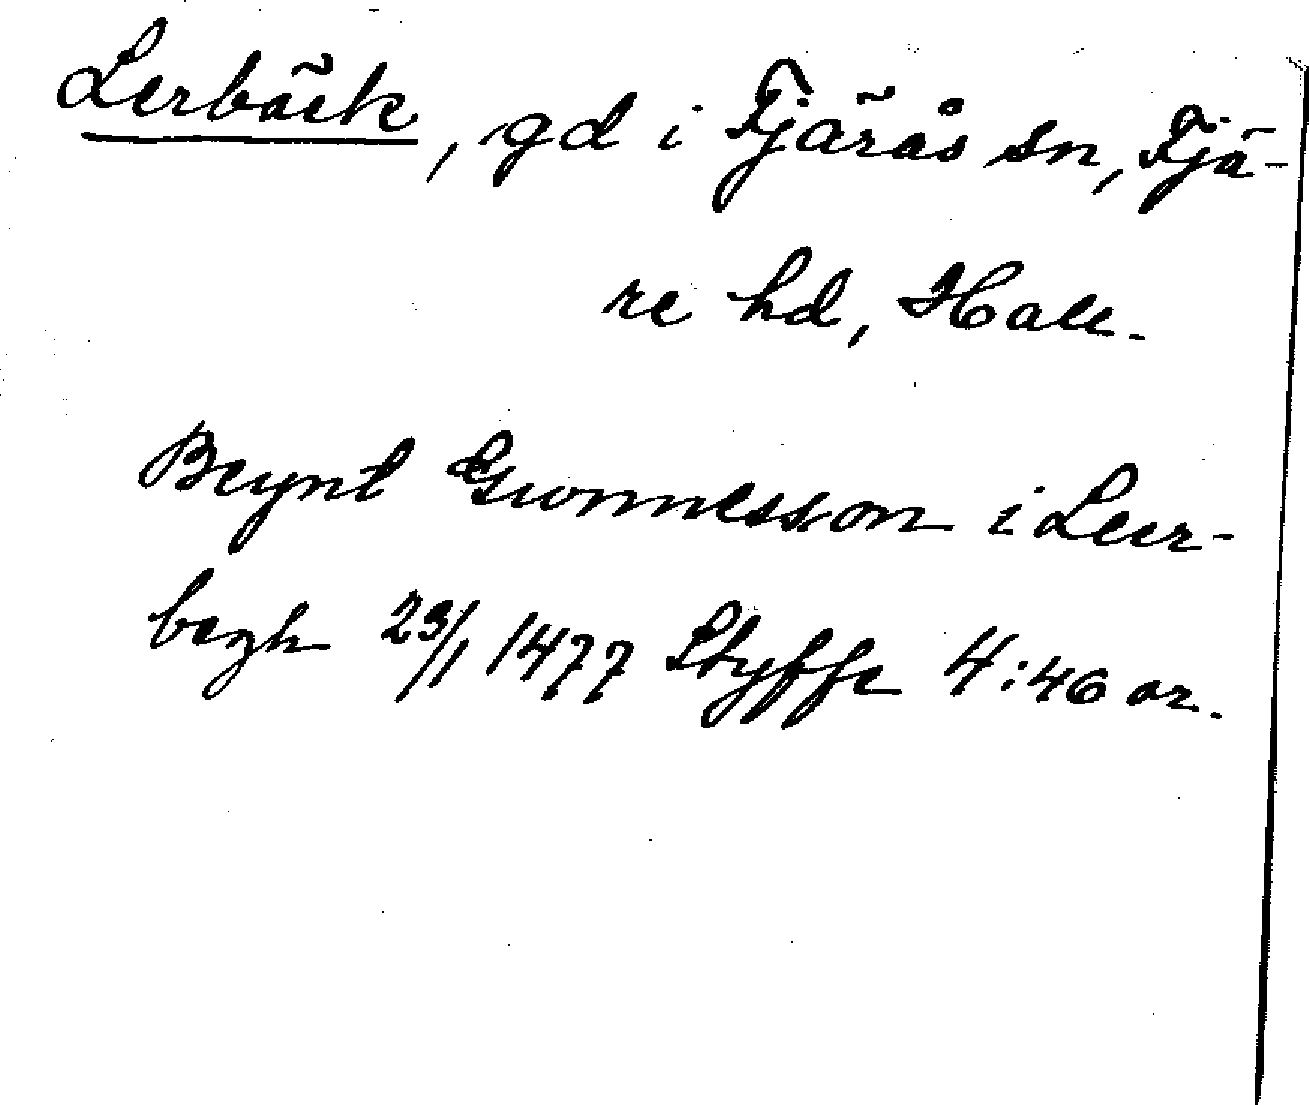 Lerbäck, gd i Fjärås sn, Fjä-
re hd, Hall.
Beynt Gunnesson i Leer-
begh 23/1 1477 Styffe 4:46 or.